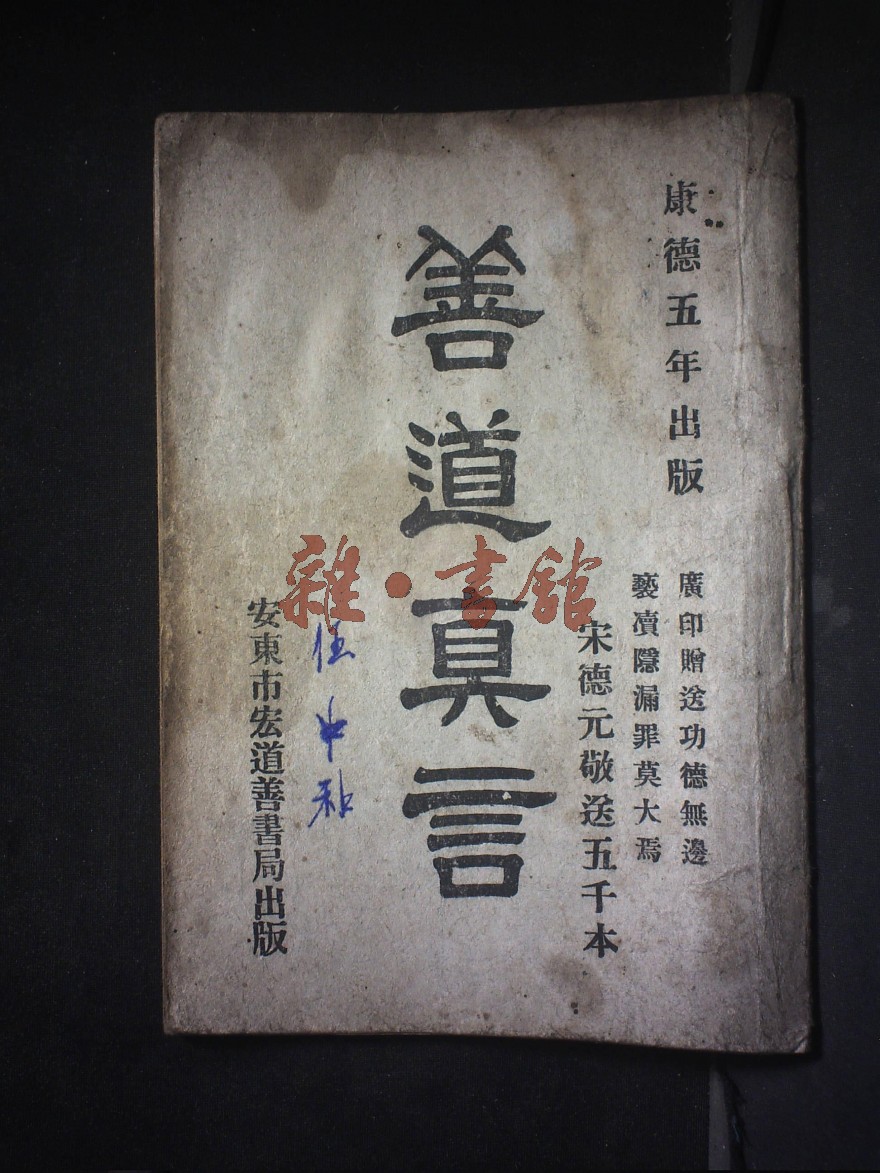 康德五年出版
廣印贈送功德無邊
褻瀆隱漏罪莫大焉
宋德元敬送五千本
善道真言
安東市宏道善書局出版
雜·書館